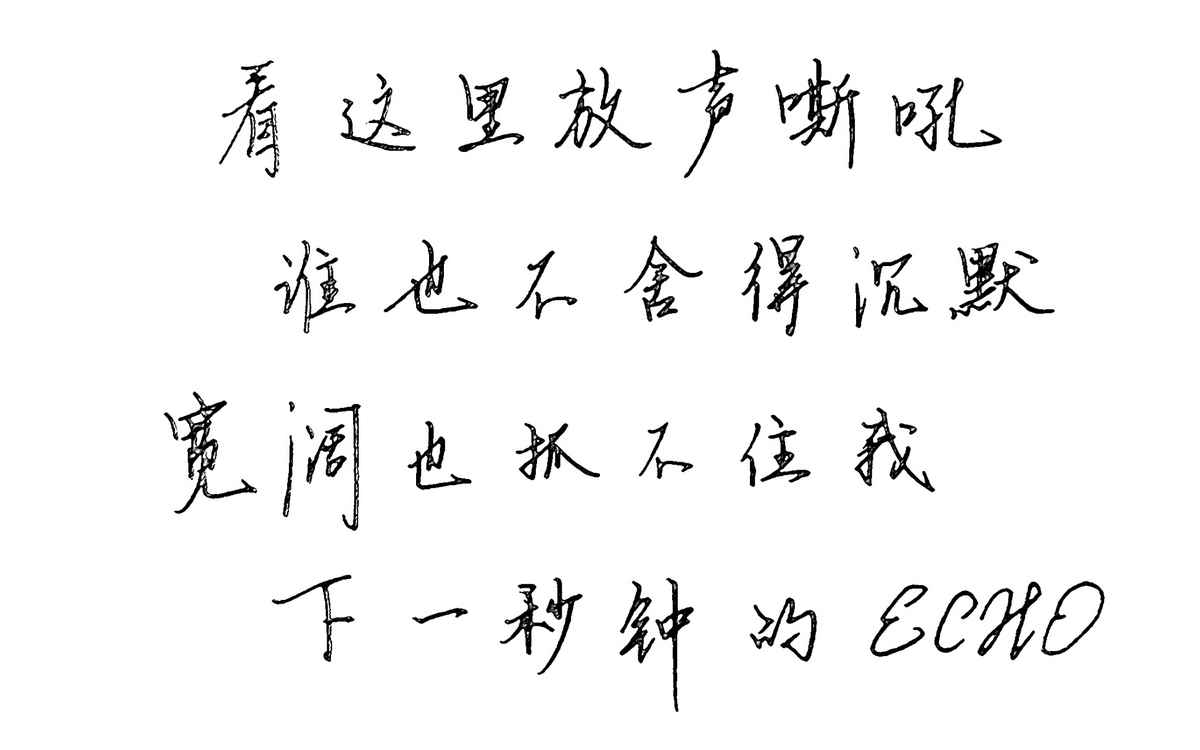 看这里放声嘶吼
谁也不舍得沉默
宽阔也抓不住我
下一秒钟的ECHO